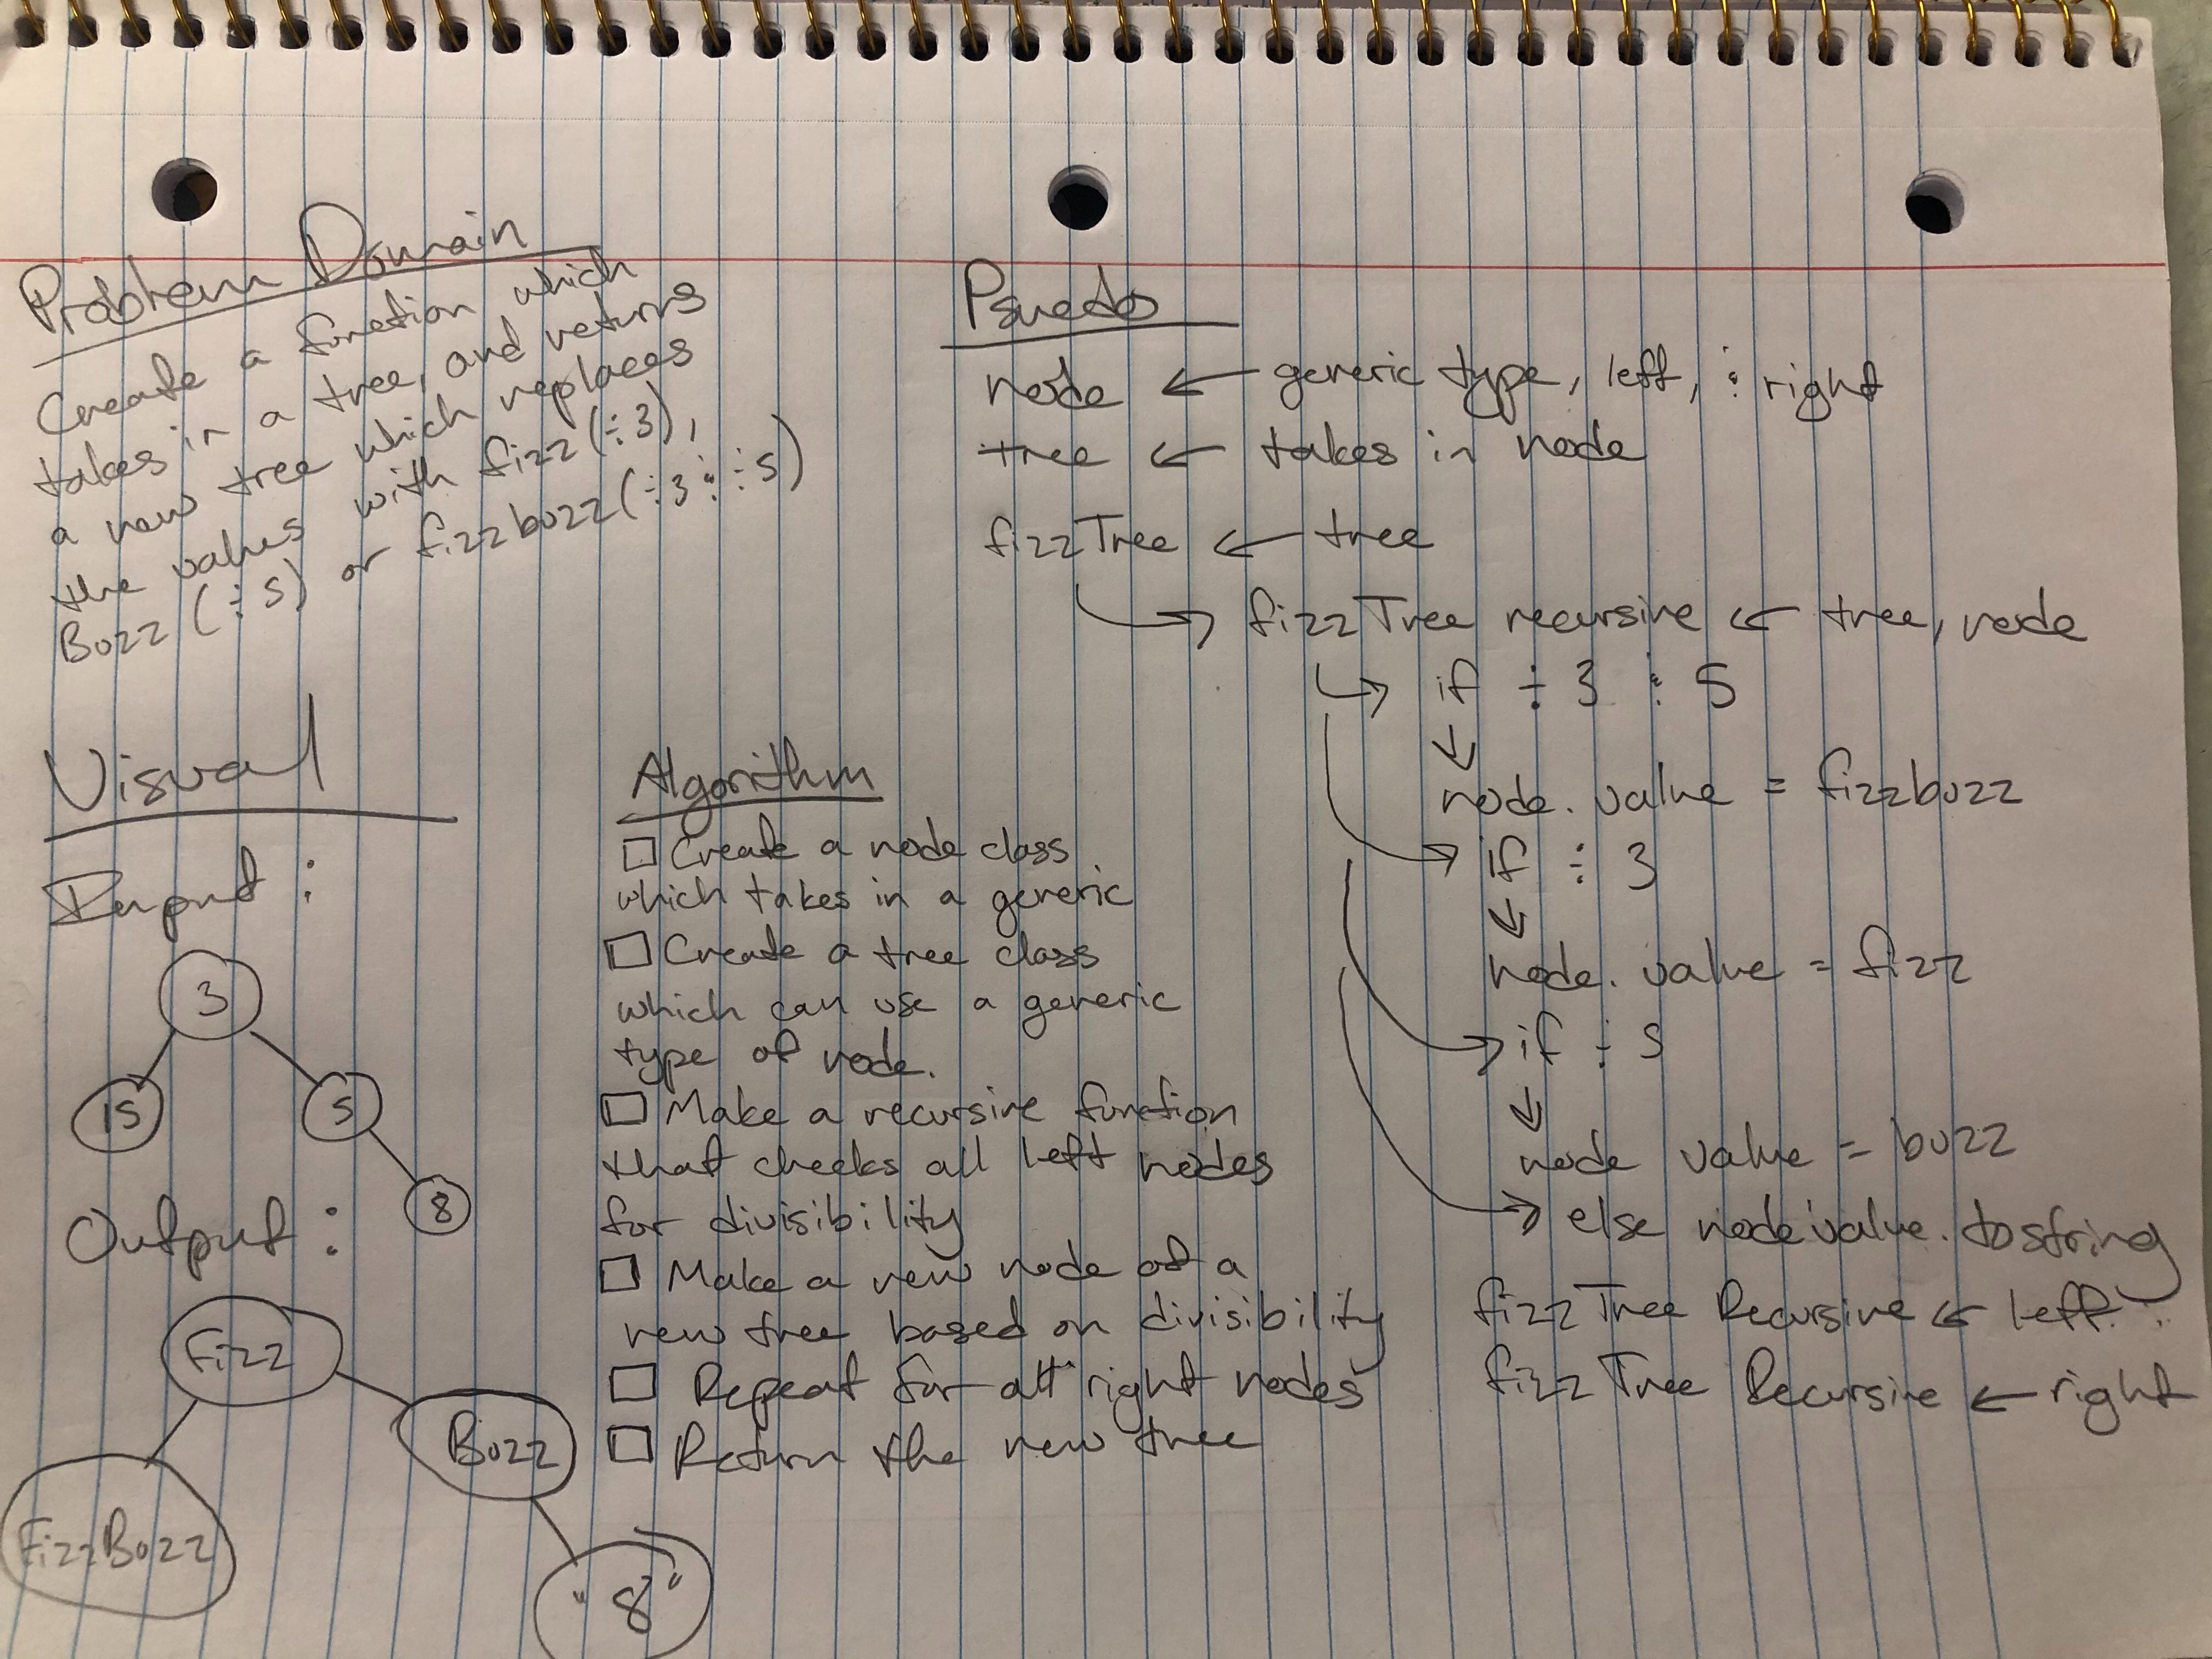 Problem Domain
Create a function which
takes in a tree, and returns
a new tree which replaces
the values with fizz (÷3),
Buzz (÷5) or fizzbuzz (÷3 & ÷5)
Visual
Input :
3
15
5
8
Output :
Fizz
Buzz
FizzBuzz
"8"
Algorithm
□ Create a node class
which takes in a generic
□ Create a tree class
which can use a generic
type of node.
□ Make a recursive function
that checks all left nodes
for divisibility
□ Make a new node of a
new tree based on divisibility
□ Repeat for all right nodes
□ Return the new tree
Psuedo
node ← generic type, left, & right
tree ← takes in node
fizzTree ← tree
→ fizzTree recursive ← tree, node
→ if ÷ 3 & 5
↓
node. value = fizzbuzz
→ if ÷ 3
↓
node. value = fizz
→ if ÷ 5
↓
node value = buzz
→ else node value. tostring
fizzTree Recursive ← left
fizzTree Recursive ← right